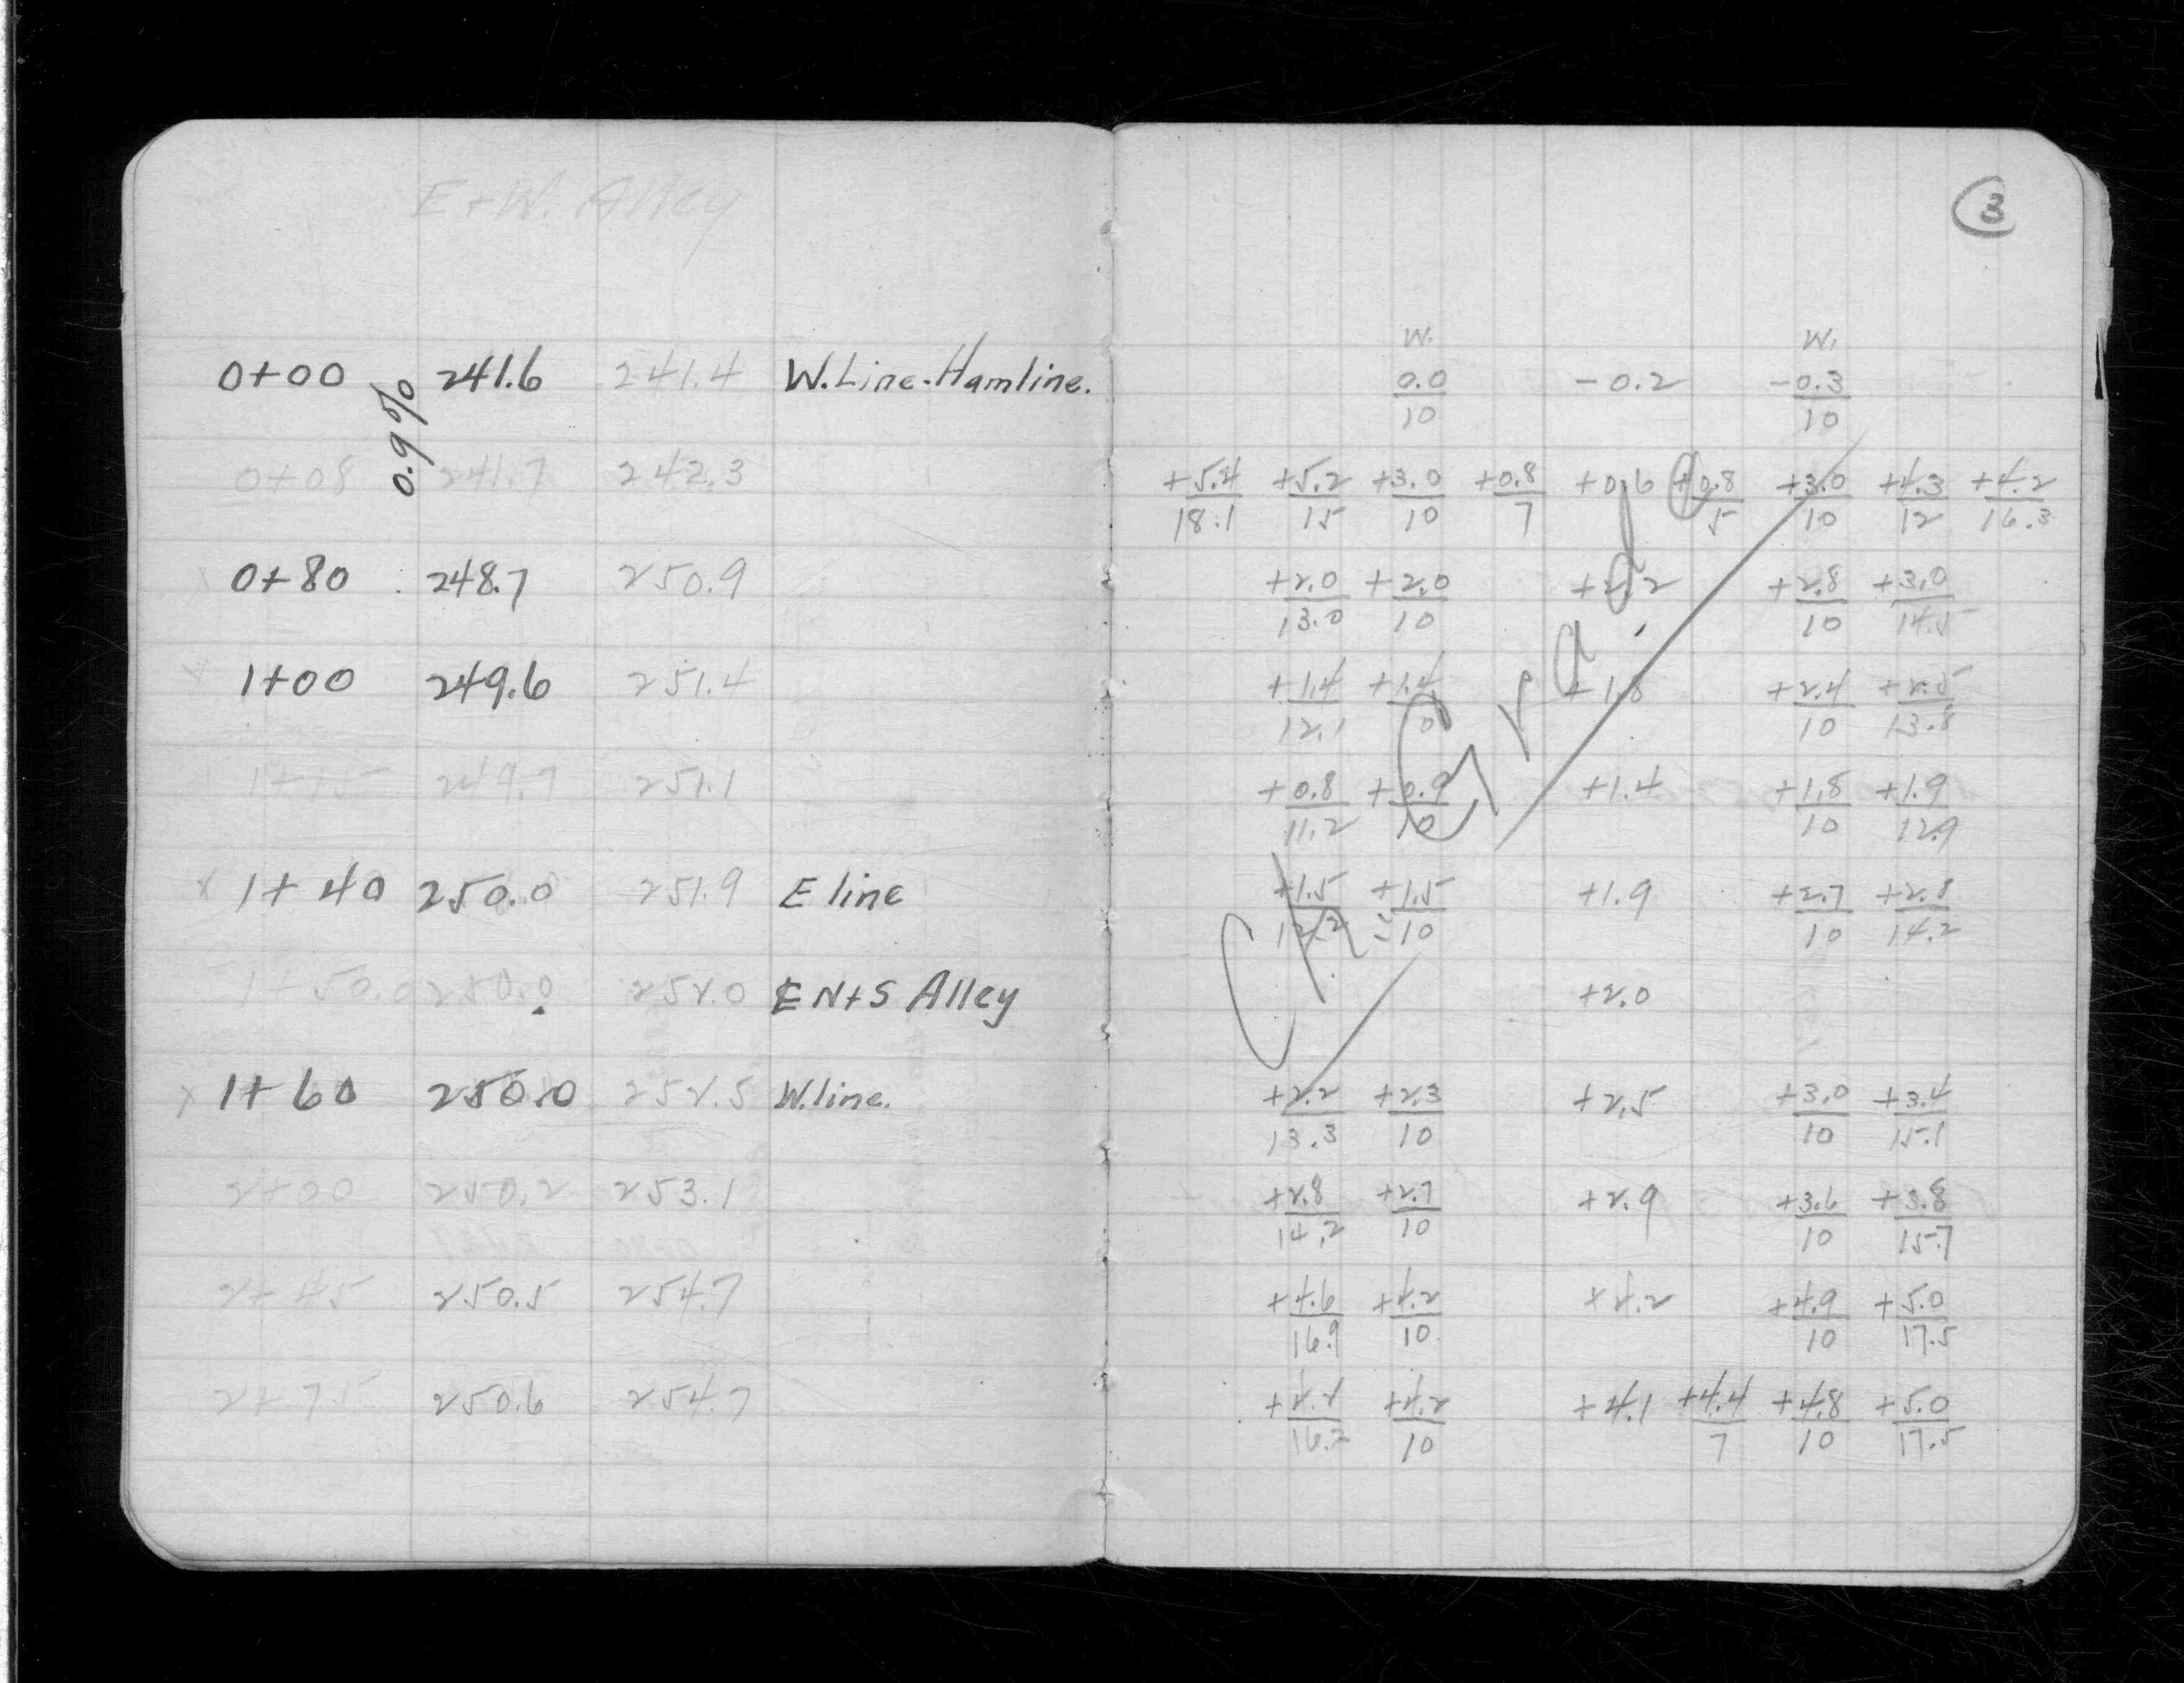 E+W. Alley
3
W. W.
0+00 241.6 241.4 W.Line-Hamline. 0.0/10 -0.2 -0.3/10
0.9%
0+08 241.7 242.3 +5.4/18.1 +5.2/15 +3.0/10 +0.8/7 +0.6 +0.8/5 +3.0/10 +4.3/12 +4.2/16.3
0+80 248.7 250.9 +2.0/13.0 +2.0/10 +2.2 +2.8/10 +3.0/14.5
1+00 249.6 251.4 +1.4/12.1 +1.4/10 +1.8 +2.4/10 +2.5/13.8
1+15 249.7 251.1 +0.8/11.2 +0.9/10 +1.4 +1.8/10 +1.9/12.9
x 1+40 250.0 251.9 E line +1.5/12.2 +1.5/10 +1.9 +2.7/10 +2.8/14.2
1+50.0 250.0 252.0 ℄ N+S Alley +2.0
x 1+60 250.0 252.5 W.line. +2.2/13.3 +2.3/10 +2.5 +3.0/10 +3.4/15.1
2+00 250.2 253.1 +2.8/14.2 +2.7/10 +2.9 +3.6/10 +3.8/15.7
2+45 250.5 254.7 +4.6/16.9 +4.2/10 +4.2 +4.9/10 +5.0/17.5
2+75 250.6 254.7 +4.2/10 +4.1 +4.4/7 +4.8/10 +5.0/17.5
Ch Grad